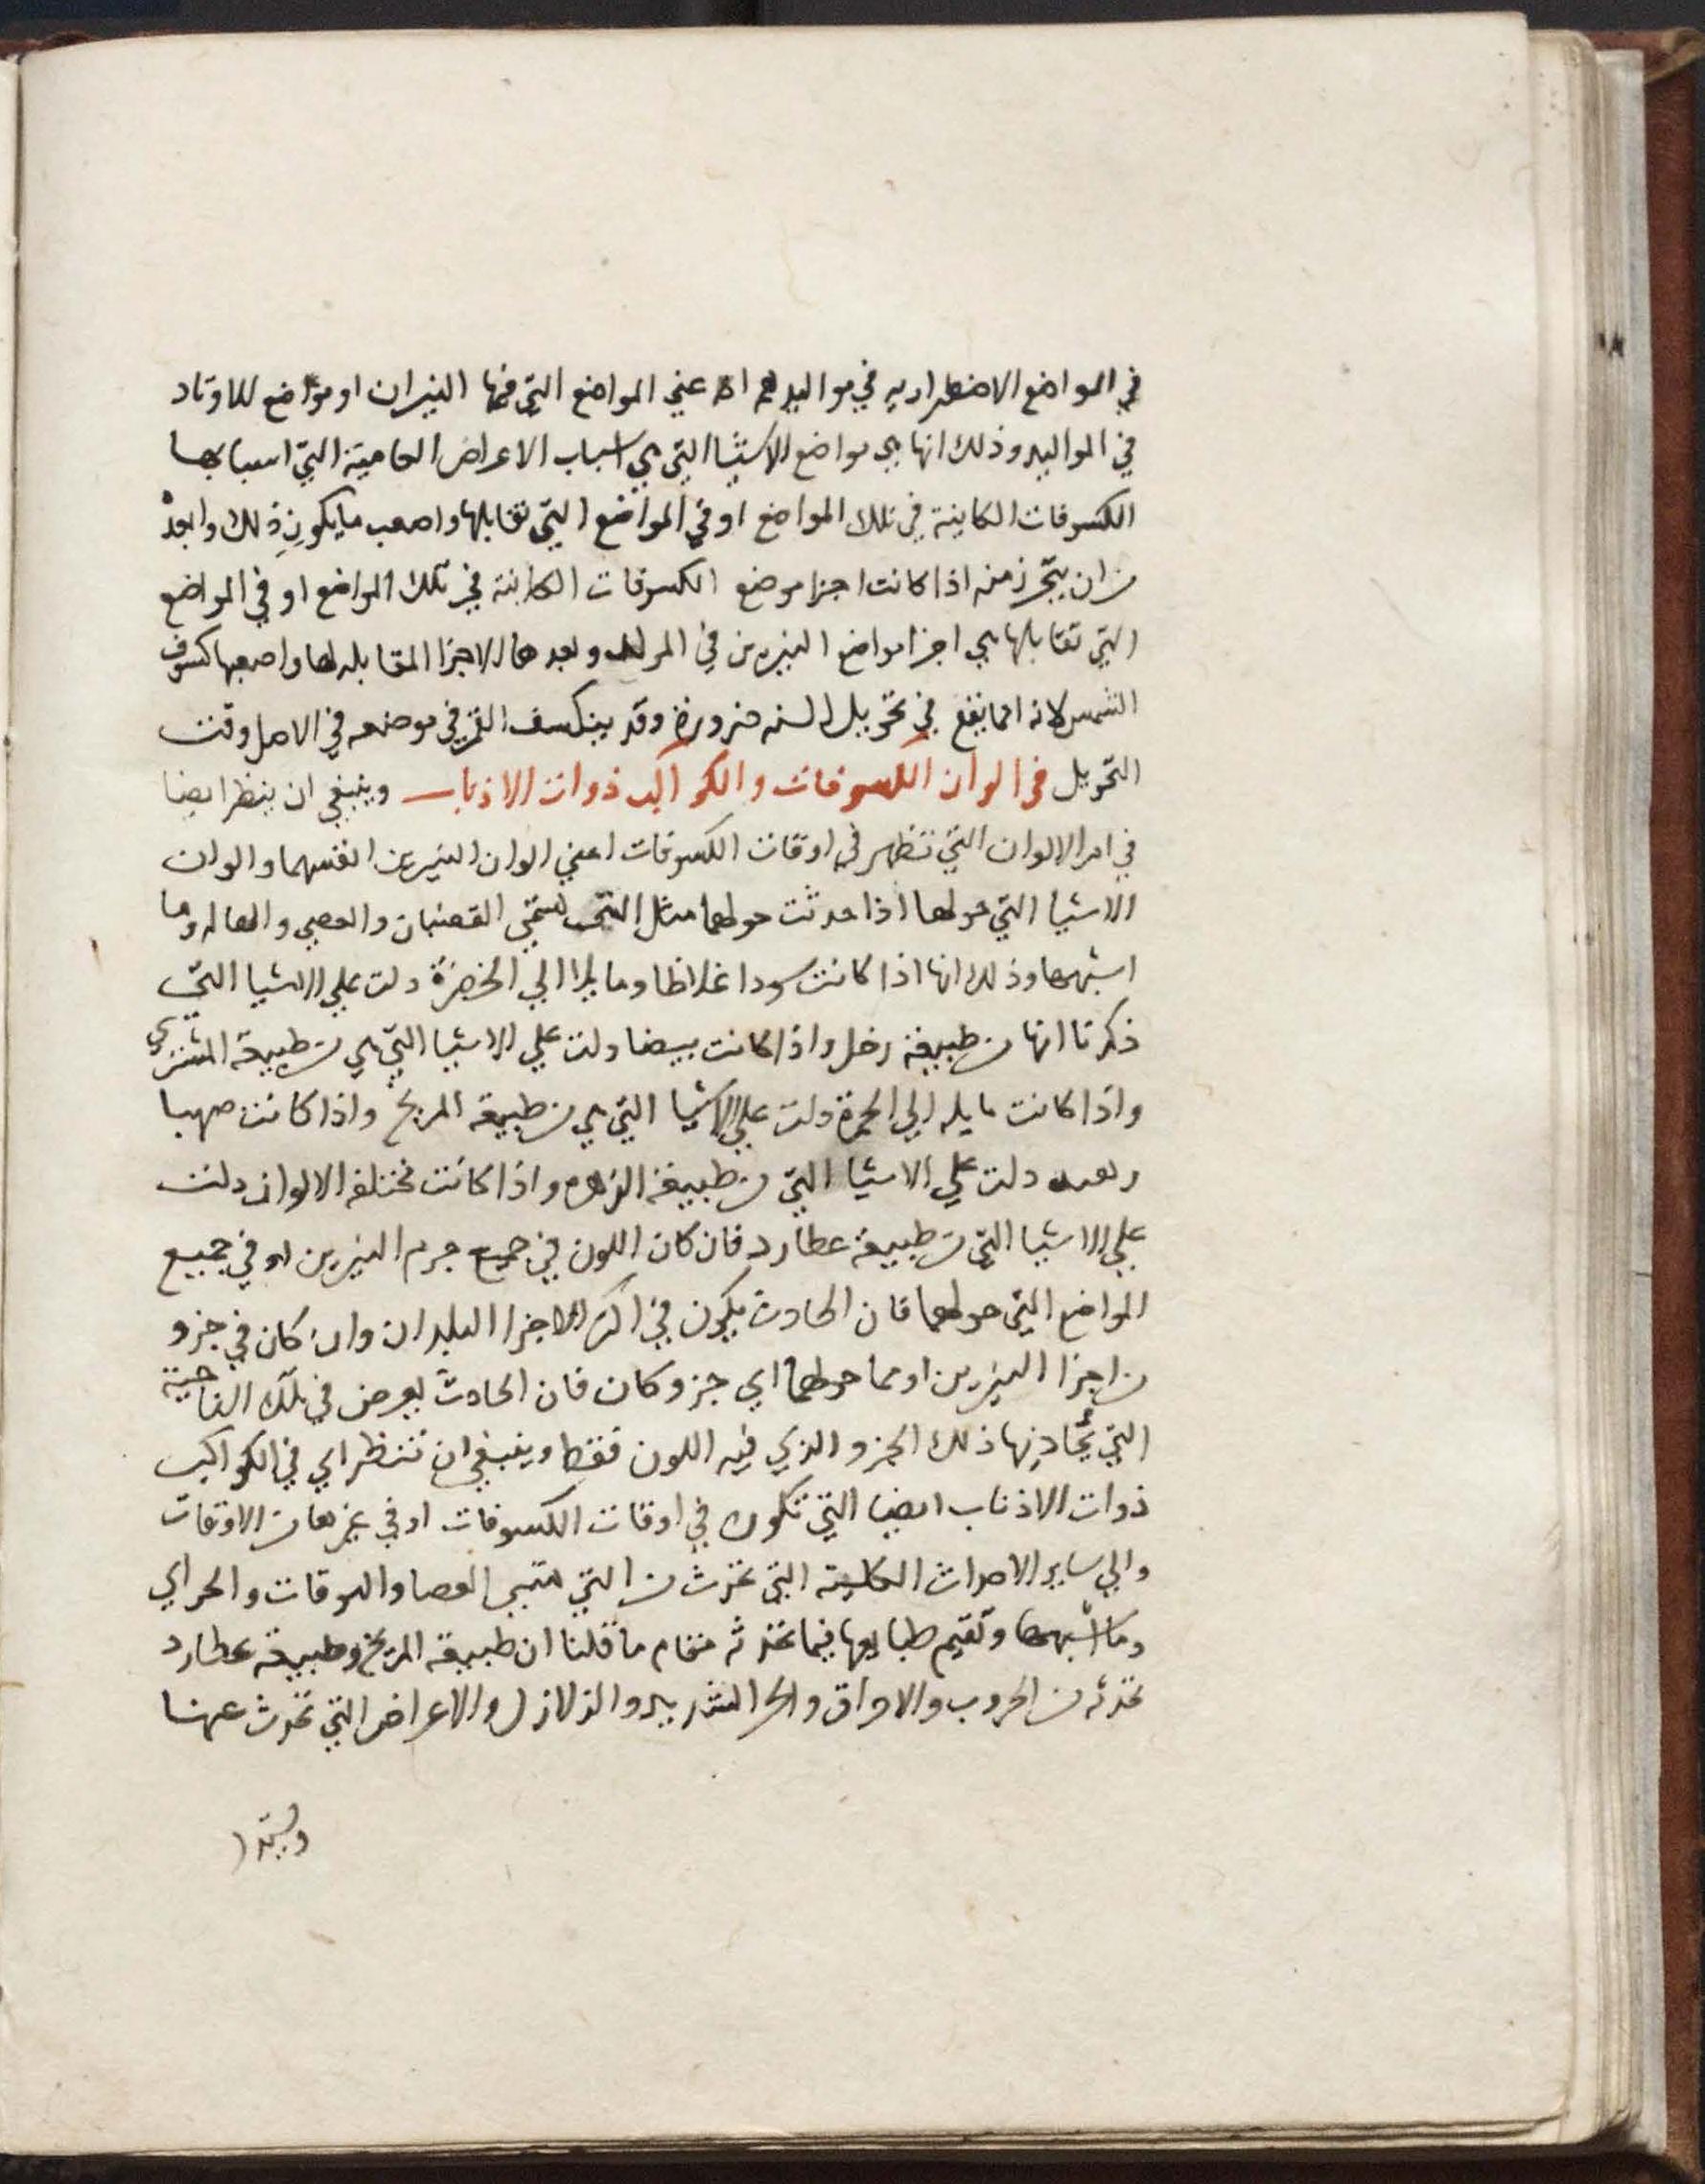 في المواضع الاضطراريه في مواليدهم اعني المواضع التي فيها النيران او مواضع الاوتاد
في المواليد وذلك انها هي مواضع الاشيا التي هي اسباب الاعراض العامية التي اسبابها
الكسوفات الكاينة في تلك المواضع او في المواضع التي تقابلها واصعب ما يكون ذلك وابعد
من ان يتحرز منه اذا كانت اجزا موضع الكسوفات الكاينة في تلك المواضع او في المواضع
التي تقابلها هي اجزا مواضع النيرين في المولد وبعدها الاجزا المقابله لها واصعبها كسوف
الشمس لانه انما يقع في تحويل السنه ضرورة وقد ينكسف القمر في موضعه في الاصل وقت
التحويل في الوان الكسوفات والكواكب ذوات الاذناب وينبغي ان ينظر ايضا
في امر الالوان التي تظهر في اوقات الكسوفات اعني الوان النيرين انفسهما والوان
الاشيا التي حولهما اذا حدثت حولهما مثل التي تسمي القضبان والعصي والهاله وما
اشبهها وذلك انها اذا كانت سودا غلاظا وما يلا الي الخضرة دلت علي الاشيا التي
ذكرنا انها من طبيعة زحل واذا كانت بيضا دلت علي الاشيا التي هي من طبيعة المشتري
واذا كانت مايله الي الحمرة دلت علي الاشيا التي هي من طبيعة المريخ واذا كانت صهبا
دلت علي الاشيا التي من طبيعة الزهره واذا كانت مختلفه الالوان دلت
علي الاشيا التي من طبيعة عطارد فان كان اللون في جميع جرم النيرين او في جميع
المواضع التي حولهما فان الحادث يكون في اكثر اجزا البلدان وان كان في جزو
من اجزا النيرين او مما حولهما اي جزو كان فان الحادث يعرض في تلك الناحية
التي يحاذيها ذلك الجزو الذي فيه اللون فقط وينبغي ان تنظر اي في الكواكب
ذوات الاذناب ايضا التي تكون في اوقات الكسوفات او في غيرها من الاوقات
والي ساير الاحداث الكلية التي تحدث من التي تسمي العصا والبوقات والحرابي
وما اشبهها وتقيم طبايعها فيما تحدثه مقام ما قلنا ان طبيعة المريخ وطبيعة عطارد
تحدثه من الحروب والاحراق والحر الشديد والزلازل والاعراض التي تحدث عنها